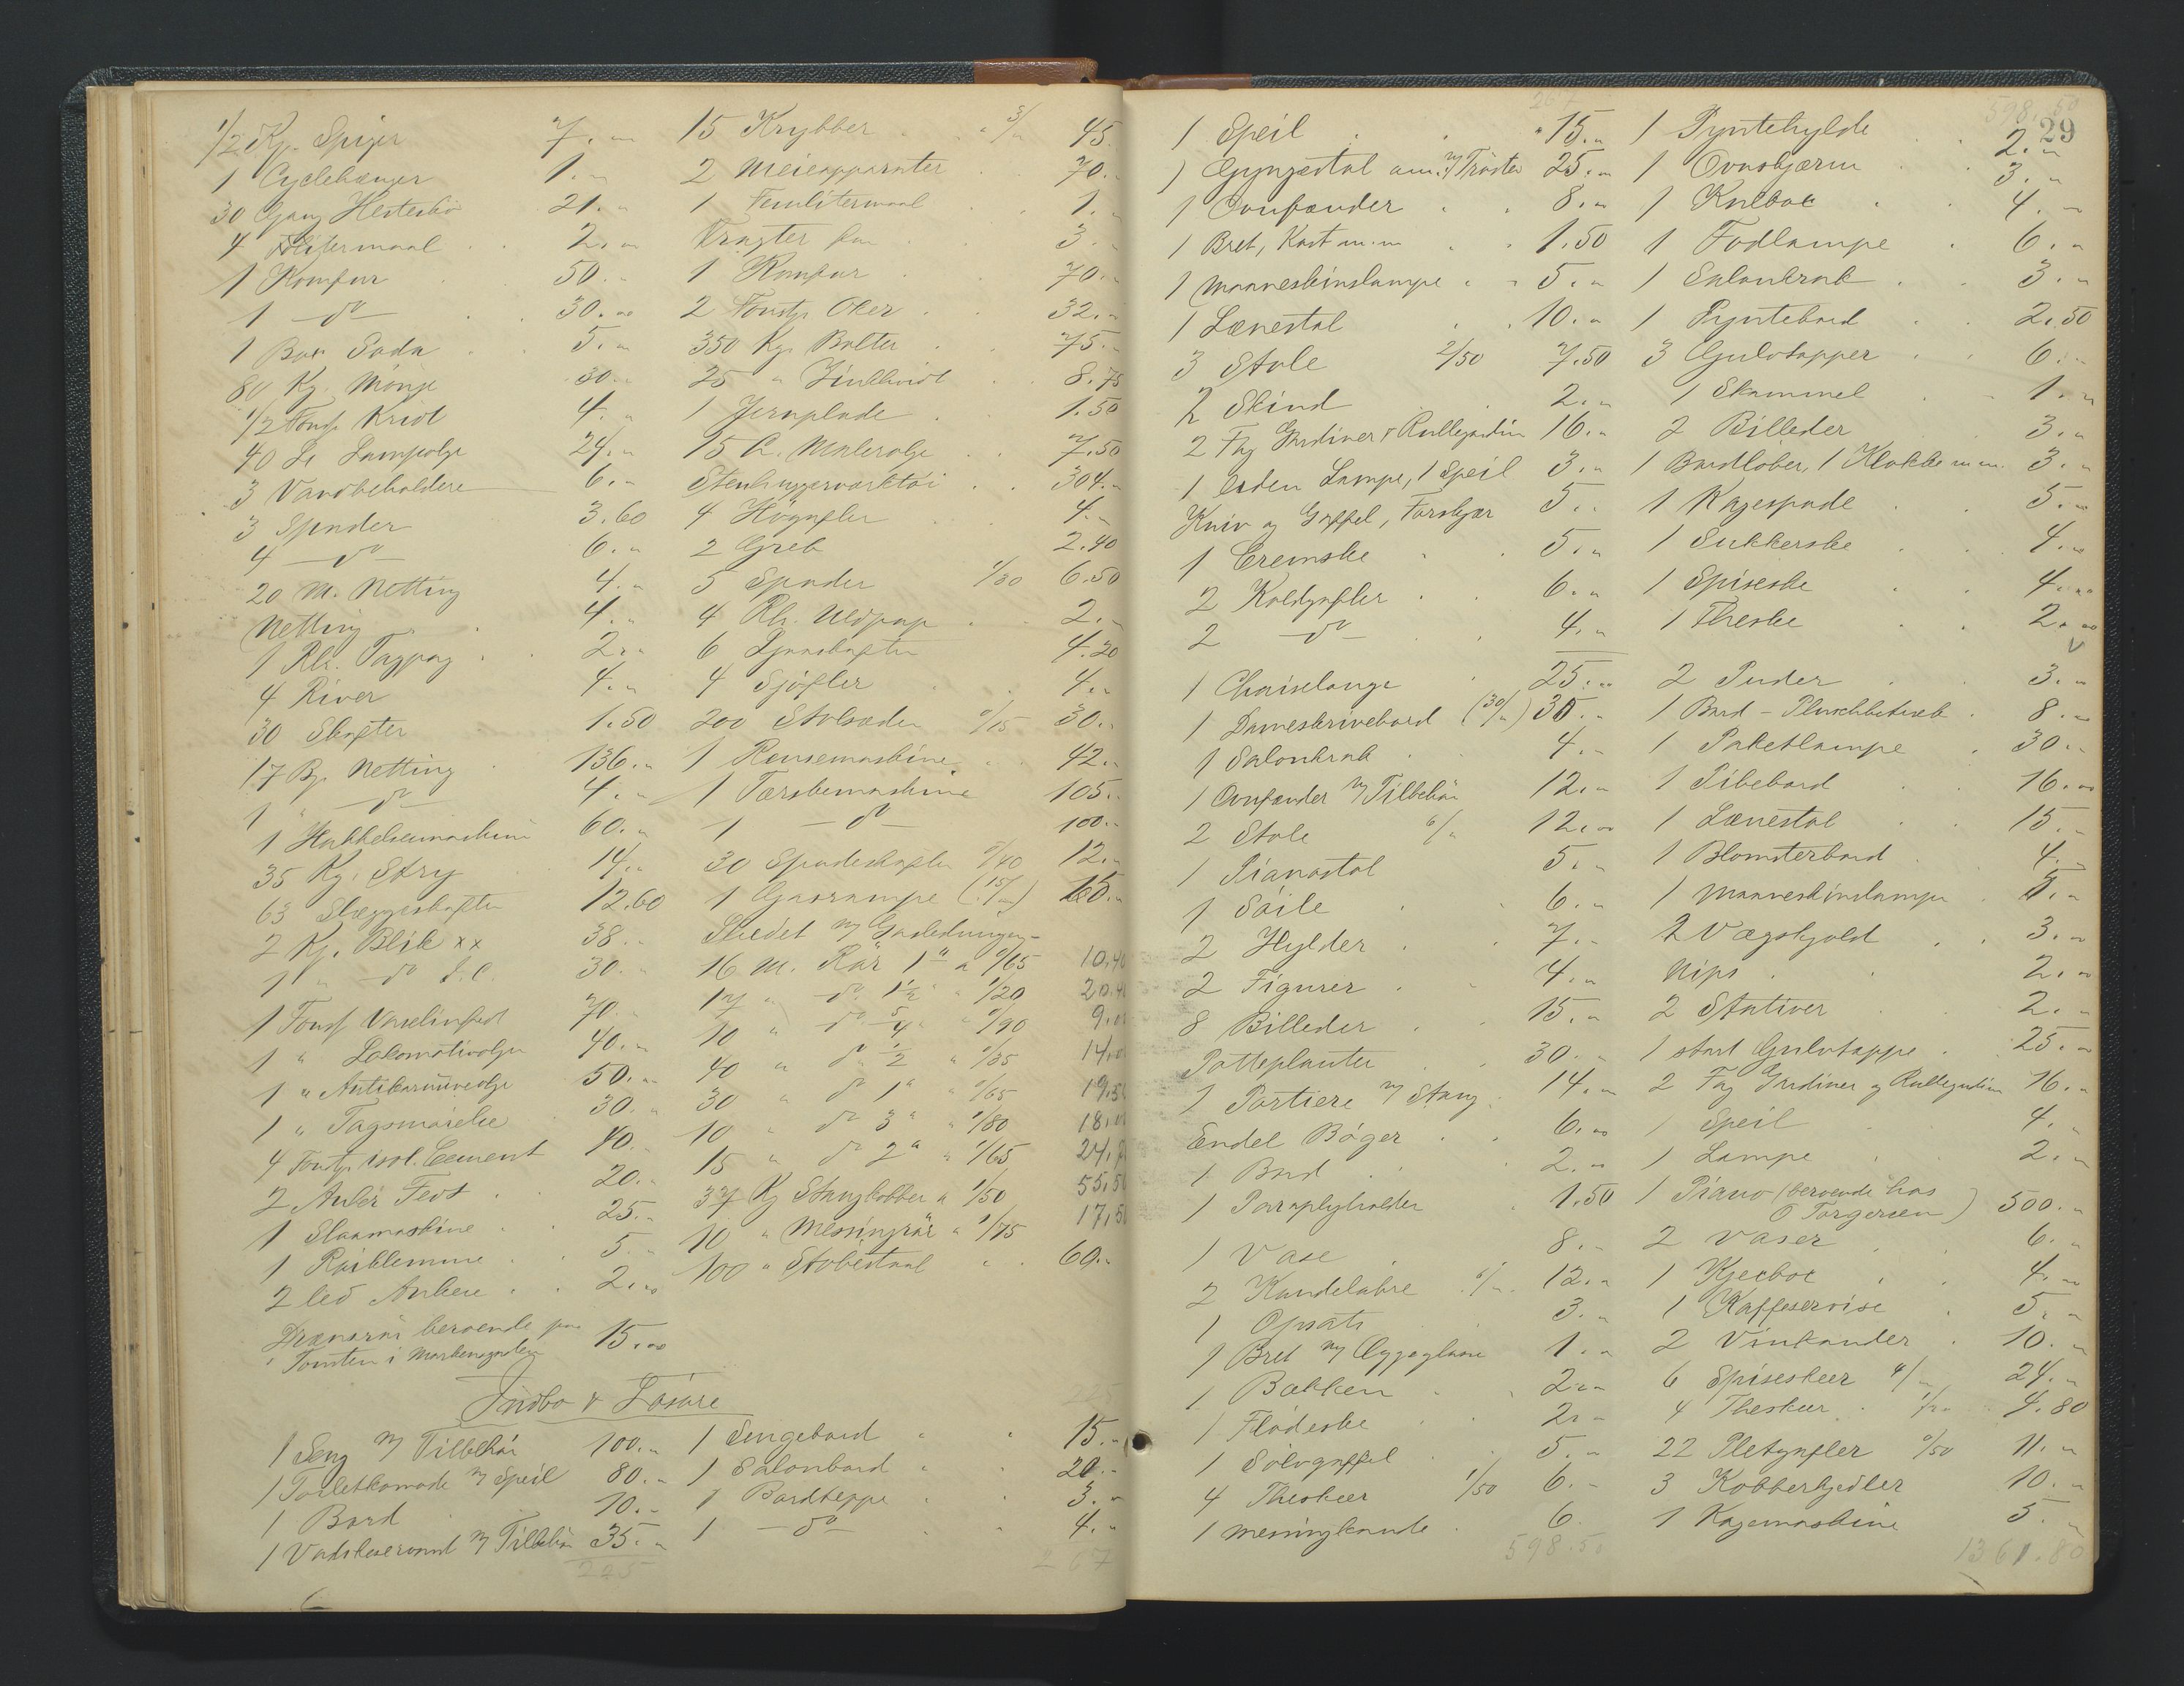 1/2 Kg. Spiger 7."
1 Cyclehænger 1."
30 Gang Hestesko 21."
4 Litermaal 2."
1 Komfur 50."
1 - do - 30."
1 Bar Soda 5."
80 Kg. Mönje 30."
1/2 Fonstp. Kridt 4."
40 L. Lampolje 24."
3 Vandbeholdere 6."
3 Spader 3.60
4 - do - 6."
20 M. Netting 4."
Netting 4."
1 Rl. Tagpap 2."
4 River 4."
30 Skafter 1.50
17 B. Netting 136."
1 " - do - 4."
1 Hakkelsemaskine 60."
35 Kg. Stry 14."
63 Slæggeskafter 12.60
2 K. Blik xx 38."
1 " - do I.C. 30."
1 Fonstp Vaselinfedt 70."
1 " Lokomotivolje 40."
1 " Antikarniveolje 50."
1 " Tagsmörelse 30."
4 Fonstp. isol. Cement 40."
2 Anker Fedt 20."
1 Slaamaskine 25."
1 Rörklemme 5."
2 led Ankere 2."
Drænsrör beroende paa
Tomten i Markensgaden 15."
15 Krybber " 3/" 45.
2 Meieapparater 70."
1 Femlitermaal 1."
Tragter 3."
1 Komfur 70."
2 Fonstp. Oker 32."
350 Kg. Bolter 75."
25 " Zinkhvidt 8.75
1 Jernplade 1.50
15 L. Malerolje 7.50
Stenhuggerværktöi 304."
4 Högafler 4."
2 Greb 2.40
5 Spader 1/30 6.50
4 Rl. Uldpap 2."
6 Ljaaskafter 4.20
4 Sjöfler 4."
200 Stolsæder 0/15 30."
1 Rensemaskine 42."
1 Tærskemaskine 105."
1 - do - 100."
30 Spadeskafter 0/40 12."
1 Gasrampe (15/")
Skedet m/ Gasledninger -
16 M. Rör 1" a 0/65 10.40
17 " do 1 1/2" " 1/20 20.40
10 " do 5/4 " 0/90 9.00
40 " do 1/2 " 0/35 14.00
30 " do 1" " 0/65 19.50
10 " do 3" " 1/80 18.00
15 " do 2" " 1/65
37 Kg Stangkobber a 1/50 55.50
10 " Messingrör " 1/75 17.50
100 " Stöbestaal " 60."
Indbo & Lösöre
1 Seng m/ Tilbehör 100."
1 Toiletkomode m/ Speil 80."
1 Bord 10."
1 Vadskeservant m/ Tilbehör 35."
225
1 Sengebord 15."
1 Salonbord 20."
1 Bordteppe 3."
1 - do - 4."
267
29
267
1 Speil 15."
1 Gyngestol am. m/ Tröster 25."
1 Ovnfænder 8."
1 Bret, Kost m.m 1.50
1 Maaneskinslampe 5."
1 Lænestol 10."
3 Stole 2/50 7.50
2 Skind 2."
2 Fag Gardiner & Rullegardin 16."
1 liden Lampe, 1 Speil 3."
Kniv og Gaffel, Forskjær 5."
1 Cremske 5."
2 Koldgafler 6."
2 - do - 4."
1 Chaiselonge 25."
1 Dameskrivebord (30/") 30."
1 Salonkrak 4."
1 Ovnfænder m/ Tilbehör 12."
2 Stole 6/" 12."
1 Pianostol 5."
1 Söile 6."
2 Hylder 7."
2 Figurer 4."
8 Billeder 15."
Potteplanter 30."
1 Portiere m/ Stang 14."
Endel Böger 6."
1 Bord 2."
1 Paraplyholder 1.50
1 Vase 8."
2 Kandelabre 6/" 12."
1 Opsats 3."
1 Bret m/ Æggeglasse 1."
1 Bakken 2."
1 Flödeske 2."
1 Sölvgaffel 5."
4 Theskeer 1/50 6."
1 Messingkande 6.
598.50
598.50
1 Pyntehylde 2."
1 Ovnskjærm 3."
1 Kulboe 4."
1 Fodlampe 6."
1 Salonkrak 3."
1 Pyntebord 2.50
3 Gulvtapper 6."
1 Skammel 1."
2 Billeder 3."
1 Bordlöber, 1 Klokke m.m. 3."
1 Kagespade 5."
1 Sukkerske 4."
1 Spiseske 4."
1 Theske 2."
2 Puder 3."
1 Bord - Pluschbetræk 8."
1 Paketlampe 30."
1 Pibebord 16."
1 Lænestol 15."
1 Blomsterbord 4."
1 Maaneskinslampe
2 Vægskjold 3."
Nips 2."
2 Stativer 2."
1 stort Gulvtappe 25."
2 Fag Gardiner og Rullegardin 16."
1 Speil 4."
1 Lampe 2."
1 Piano (beroende hos
O Torgersen) 500."
2 Vaser 6."
1 Kjecboe 4."
1 Kaffeservise 5."
2 Vinkander 10."
6 Spiseskeer 4/" 24."
4 Theskeer 1/20 4.80
22 Pletgafler 0/50 11."
3 Kobberkjedler 10."
1 Kagemaskine 5."
1361.80